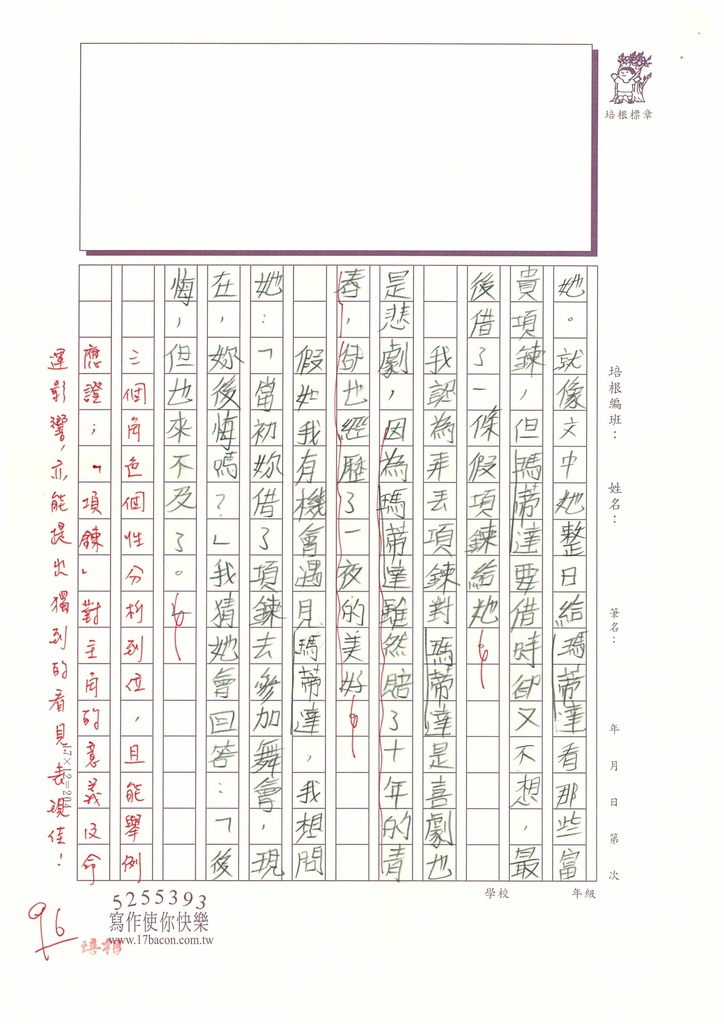 培根標章
培根編班：
姓名：
筆名：
年 月 日 第 次
學校
年級
她。就像文中她整日給瑪蒂達看那些富
貴項鍊，但瑪蒂達要借時卻又不想，最
後借了一條假項鍊給她。
我認為弄丟項鍊對瑪蒂達是喜劇也
是悲劇，因為瑪蒂達雖然賠了十年的青
春，卻也經歷了一夜的美好。
假如我有機會遇見瑪蒂達，我想問
她：「當初妳借了項鍊去參加舞會，現
在，妳後悔嗎？」我猜她會回答：「後
悔，但也來不及了。
三個角色個性分析到位，且能舉例
應證；「項鍊」對主角的意義及命
運影響，亦能提出獨到的看見，表現佳！
17×12=204
96
培根
5255393
寫作使你快樂
www.17bacon.com.tw